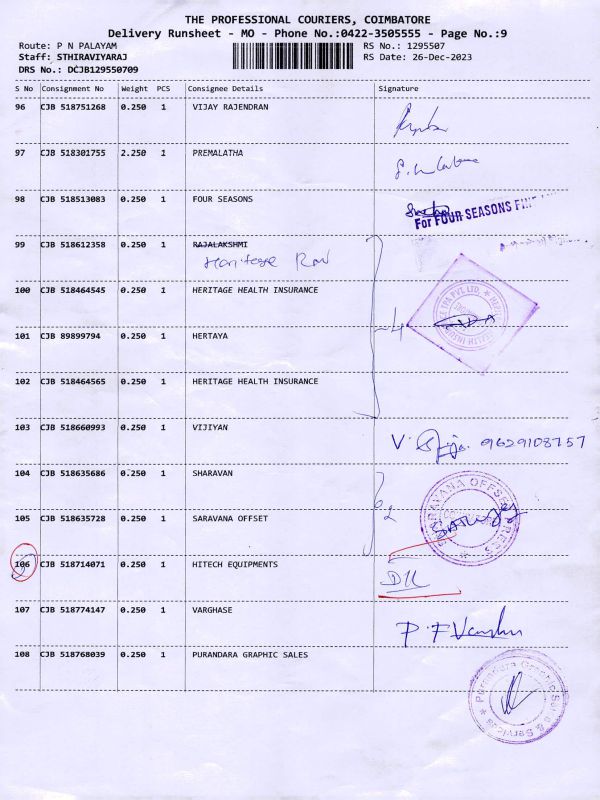 THE PROFESSIONAL COURIERS, COIMBATORE
Delivery Runsheet - MO - Phone No.:0422-3505555 - Page No.:9
Route: P N PALAYAM
Staff: STHIRAVIYARAJ
DRS No.: DCJB129550709
RS No.: 1295507
RS Date: 26-Dec-2023
S No Consignment No Weight PCS Consignee Details Signature
96 CJB 518751268 0.250 1 VIJAY RAJENDRAN
97 CJB 518301755 2.250 1 PREMALATHA
98 CJB 518513083 0.250 1 FOUR SEASONS
For FOUR SEASONS
99 CJB 518612358 0.250 1 RAJALAKSHMI
Heritage
100 CJB 518464545 0.250 1 HERITAGE HEALTH INSURANCE
101 CJB 89899794 0.250 1 HERTAYA
4
102 CJB 518464565 0.250 1 HERITAGE HEALTH INSURANCE
103 CJB 518660993 0.250 1 VIJIYAN
V. 9629108757
104 CJB 518635686 0.250 1 SHARAVAN
105 CJB 518635728 0.250 1 SARAVANA OFFSET
2
SARAVANA OFFSET
106 CJB 518714071 0.250 1 HITECH EQUIPMENTS
107 CJB 518774147 0.250 1 VARGHASE
108 CJB 518768039 0.250 1 PURANDARA GRAPHIC SALES
Purandara Graphic Sales & Services